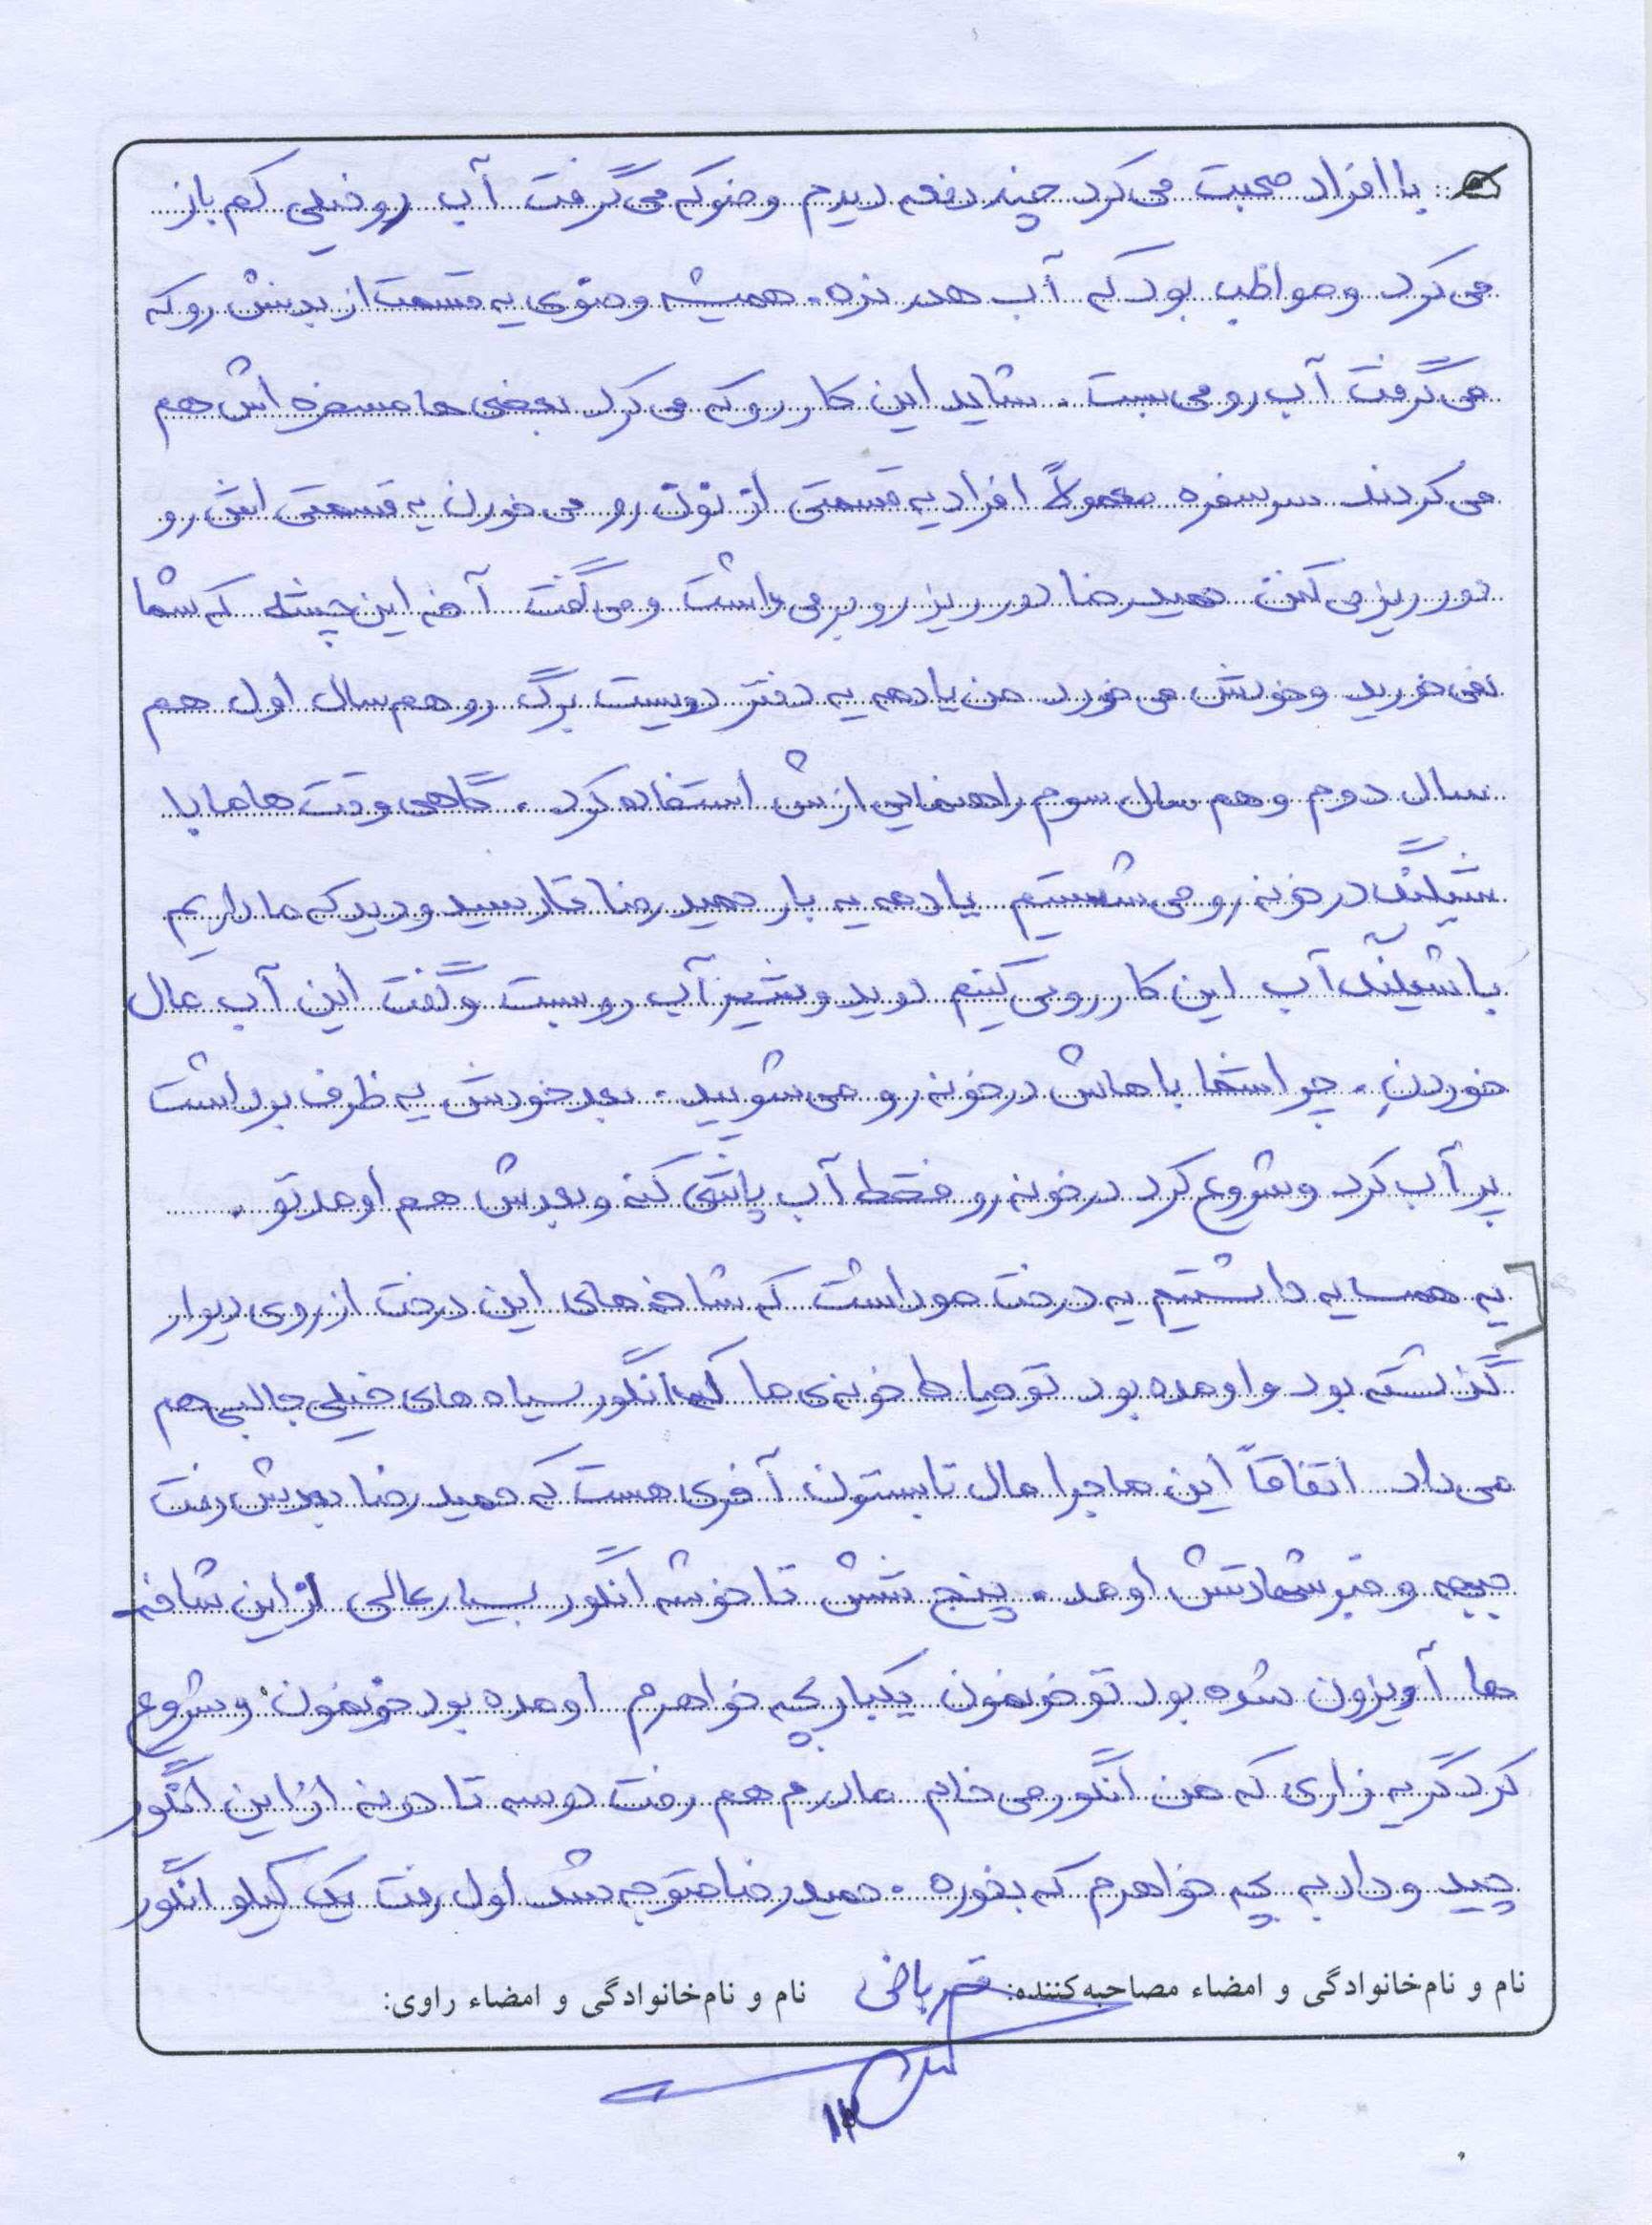 با افراد صحبت می‌کرد چند دفعه دیدم وضو که می‌گرفت آب رو خیلی کم باز
می‌کرد و مواظب بود که آب هدر نره. همیشه وضوی یه قسمت از بدنش رو که
می‌گرفت آب رو می‌بست. شاید این کار رو که می‌کرد بعضی ها مسخره اش هم
می‌کردند سر سفره معمولاً افراد یه قسمتی از نون رو می‌خورن یه قسمتی اش رو
دور ریز می‌کنن حمیدرضا دور ریز رو بر می‌داشت و می‌گفت آخه این چیشه که شما
نمی‌خورید و خودش می‌خورد من یادمه یه دفتر دویست برگ رو هم سال اول هم
سال دوم و هم سال سوم راهنمایی ازش استفاده کرد. گاهی وقت ها ما با
شیلنگ در خونه رو می‌شستیم یادمه یه بار حمیدرضا تا رسید و دید که ما داریم
با شیلنگ آب این کار رو می‌کنیم دوید و شیر آب رو بست و گفت این آب مال
خوردنِ. چرا شما باهاش در خونه رو می‌شویید. بعد خودش یه ظرف برداشت
پر آب کرد و شروع کرد در خونه رو فقط آب پاشی کنه و بعدش هم اومد تو.
یه همسایه داشتیم یه درخت مو داشت که شاخه های این درخت از روی دیوار
گذشته بود و اومده بود تو حیاط خونه‌ی ما که انگور سیاه های خیلی جالبی هم
می‌داد اتفاقاً این ماجرا مال تابستون آخری هست که حمیدرضا بعدش رفت
جبهه و خبر شهادتش اومد. پنج شش تا خوشه انگور بسیار عالی از این شاخه
ها آویزون شده بود تو خونمون یکبار بچه خواهرم اومده بود خونمون و شروع
کرد گریه زاری که من انگور می‌خام مادرم هم رفت دو سه تا دونه از این انگور
چید و داد به بچه خواهرم که بخوره. حمیدرضا متوجه شد اول رفت یک کیلو انگور
نام و نام‌خانوادگی و امضاء مصاحبه‌کننده: نام و نام‌خانوادگی و امضاء راوی: